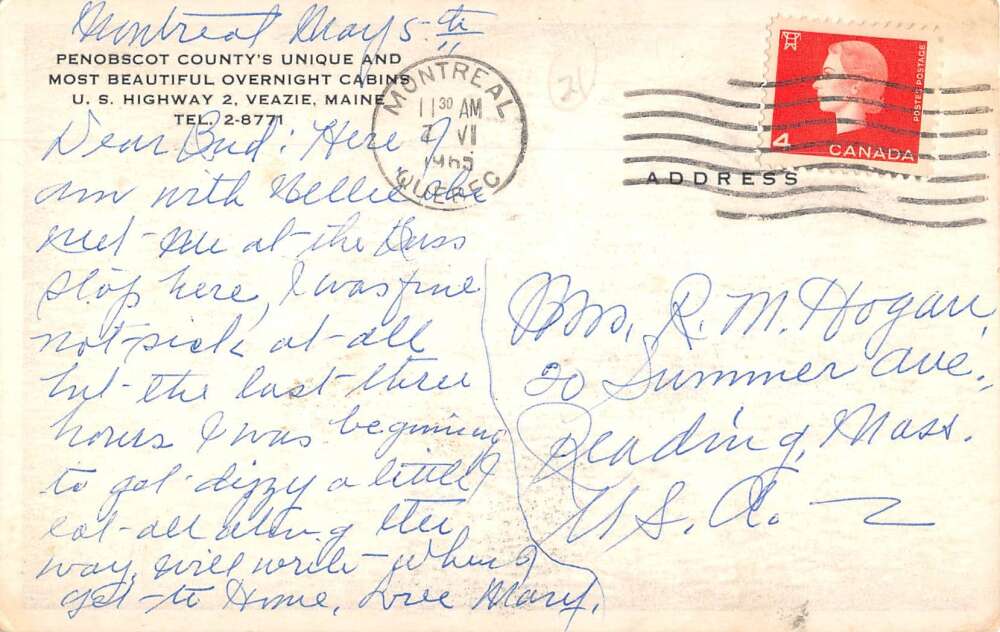 Montreal May 5-th
PENOBSCOT COUNTY'S UNIQUE AND
MOST BEAUTIFUL OVERNIGHT CABINS
U. S. HIGHWAY 2, VEAZIE, MAINE
TEL. 2-8771
Dear Bud: Here I
am with Nellie she
met me at the Buss
stop here, I was fine
not sick at all
but the last three
hours I was beginning
to get dizzy a little I
eat all along the
way, will write when I
get to Home, Love Mary.
MONTREAL
11 30 AM
VI
1965
QUEBEC
21
POSTES POSTAGE
4
CANADA
ADDRESS
Mrs, R. M. Hogan,
20 Summer Ave.,
Reading, Mass.
U.S.A.